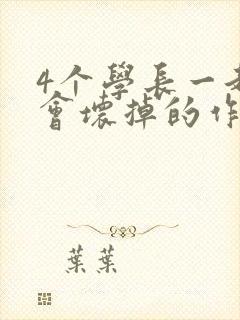 4个學長一
會壞掉的作
葉葉